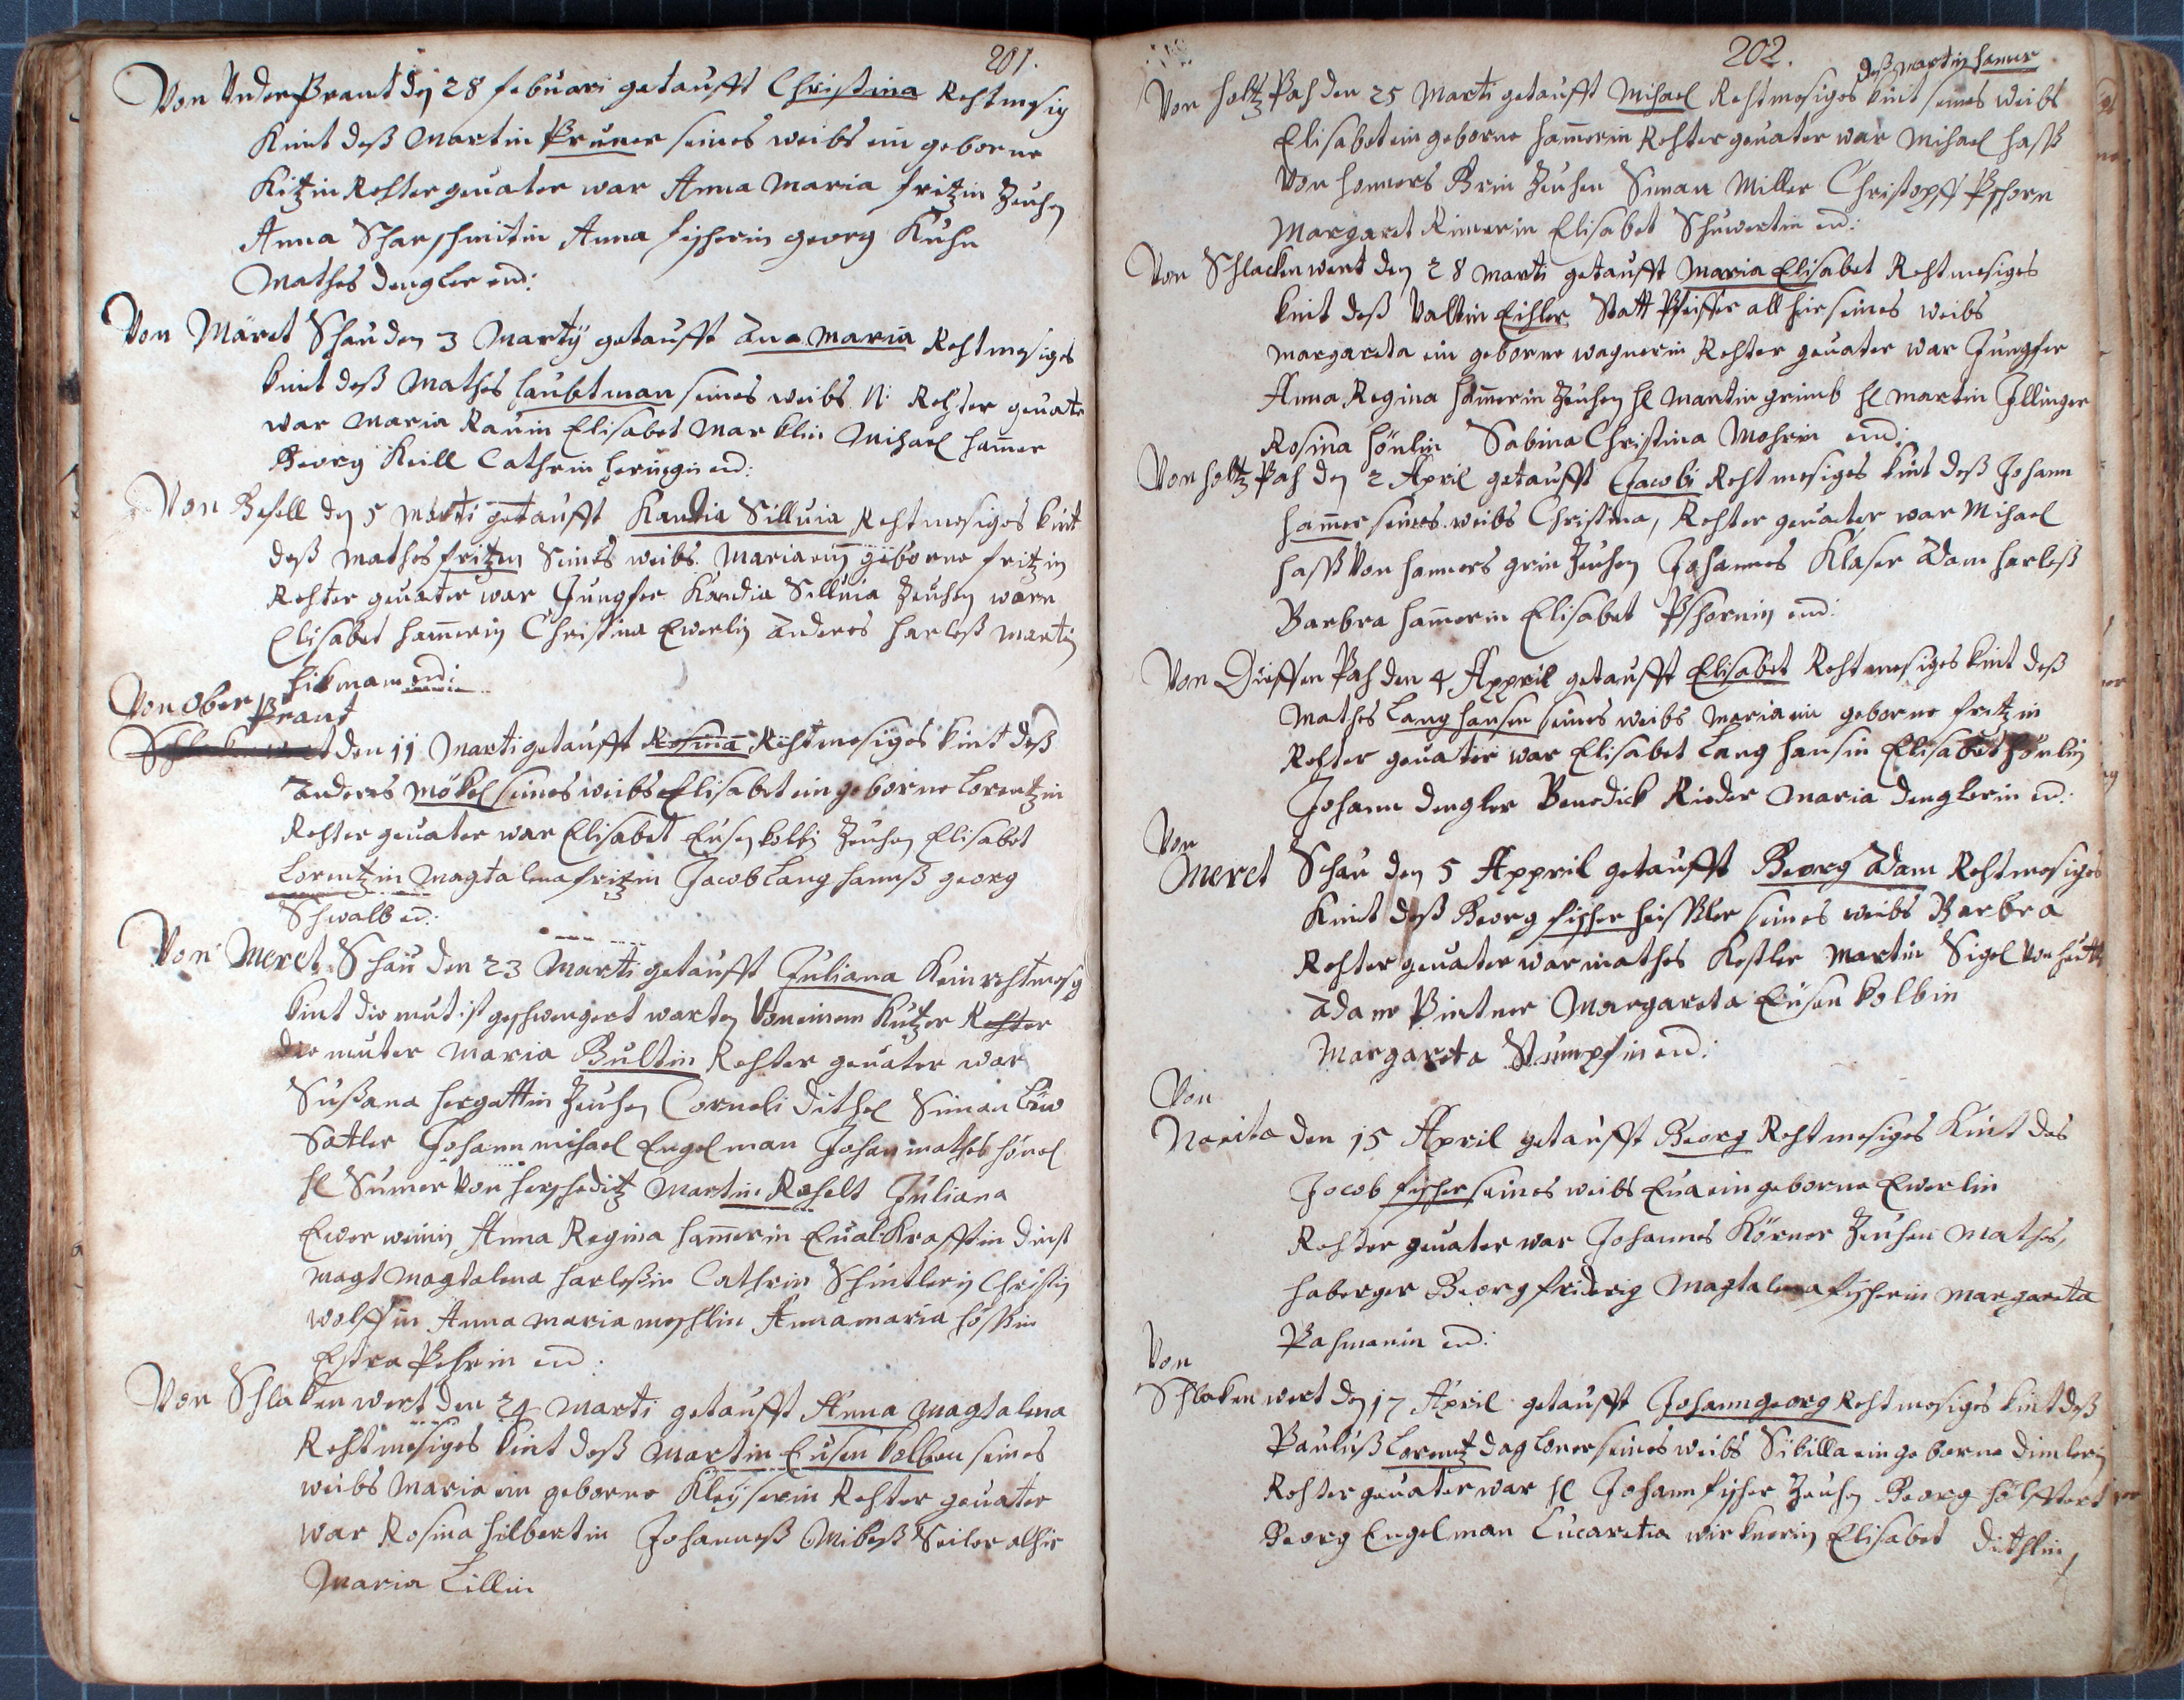 201.
Von Vnder Prant den 28 febuari getaufft Christina Rehtmesig
Kint deß Martin Pruner seines weibs ein geborne
Kitzin Rehter geuater war Anna Maria fritzin Zeuhen
Anna Scharschmitin Anna fischerin georg Kuhn
Mathes dengler end:
Von Märet Schau den 3 Martÿ getaufft Ana Maria Rehtmesiges
kint deß Mathes haubtman seines weibs N: Rehter geuater
war Maria Rauin Elisabet Marklin Mihael hamer
Georg Keill Cathrin heringin end:
Von Gesell den 5 Marti getaufft Kandia Silluia Rehtmesiges kint
deß Mathes fritzen seines weibs Maria ein geborne fritzin
Rehter geuater war Jungfer Kandia Silluia Zeuhen warn
Elisabet hamerin Christina Ewerlin Anderes harleß Martin
hikman end:
Von Ober Prant
den 11 Marti getaufft Rosina Rehtmesiges kint deß
Anderes Mökel seines weibs Elisabet ein geborne Lorentzin
Rehter geuater war Elisabet Eusenkolbin Zeuhen Elisabet
Lorentzin Magtalena fritzin Jacob Langhanß georg
Schwalb end:
Von Meret Schau den 23 Marti getaufft Juliana Kein rehtmesig
kint die mut ist geschwengert warten Von einem Kutzer Rehter
die muter Maria Bultin Rehter geuater war
Sußana hergettin Zeuhen Corneli dithel Siman Löw
Satler Johann mihael Engelman Johan mathes hönel
hl Sumer Von herscheditz Martin Roselt Juliana
Ewerweinin Anna Regina hamerin Eua Krafftin dinst
magt Magtalena harleßin Cathrin Schintlerin Christin
wolffin Anna maria meschlin Anna maria hossin
Estra Pehrin end:
Von Schlakenwert den 24 Marti getaufft Anna Magtalena
Rehtmesiges kint deß Martin Eusenkolben seines
weibs Maria ein geborne Kleÿserin Rehter geuater
war Rosina hilbertin Johanneß Mikeß Seiler alhir
Maria Lillin
202.
deß Martin hamer
Von holtz Pah den 25 Marti getaufft Mihael Rehtmesiges kint seines weibs
Elisabet ein geborne hamerin Rehter geuater war Mihael haß
Von honners Grin Zeuhen Siman Miller Christopff Pschorn
Margaret Rimerin Elisabet Schuwertin end:
Von Schlackenwert den 28 Marti getaufft Maria Elisabet Rehtmesiges
kint deß Valtin Eihler Statt Pfeiffer all hir seines weibs
margareta ein geborne wagnerin Rehter geuater war Jungfer
Anna Regina hamerin Zeuhen hl Martin grimb hl Martin Illinger
Rosina hönlin Sabina Christina Mohrin end:
Von holtz Pah den 2 April getaufft Jacobi Rehtmesiges kint deß Johann
hamer seines weibs Christina, Rehter geuater war Mihael
haß Von hanners grin Zeuhen Johannes Klaser Adam harleß
Barbra hamerin Elisabet Pschornin end:
Von Dieffen Pah den 4 Appril getaufft Elisabet Rehtmesiges kint deß
Mathes Langhansen seines weibs Maria ein geborne fritzin
Rehter geuater war Elisabet Langhansin Elisabet hönlin
Johann dengler Benedick Rieder Maria denglerin end:
Von
Meret Schau den 5 Appril getaufft Georg Adam Rehtmesiges
Kint deß Georg fischer heißler seines weibs Barbra
Rehter geuater war mathes Kestler Martin Sigel Von hutt
Adam Pintner Margareta Eusenkolbin
Margareta Stumpfin end:
Von
Narita den 15 April getaufft Georg Rehtmesiges Kint des
Jocob fischer seines weibs Eua ein geborne Ewerlin
Rehter geuater war Johannes Körner Zeuhen Mathes,
haberger Georg friderig Magtalena fischerin Margareta
Pahmanin end:
Von
Schlakenwert den 17 April getaufft Johann georg Rehtmesiges kint deß
Pauluß Lorentz daglöner seines weibs Sibilla ein geborne dimlerin
Rehter geuater war hl Johann fischer Zeuhen Georg hölffert
Georg Engelman Lucaretia wirknerin Elisabet dithlin